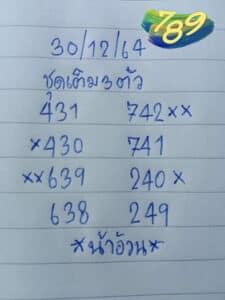 789
30/12/64
ชุดเต็ม3ตัว
431 742××
×430 741
××639 240×
638 249
×น้าอ้วน×